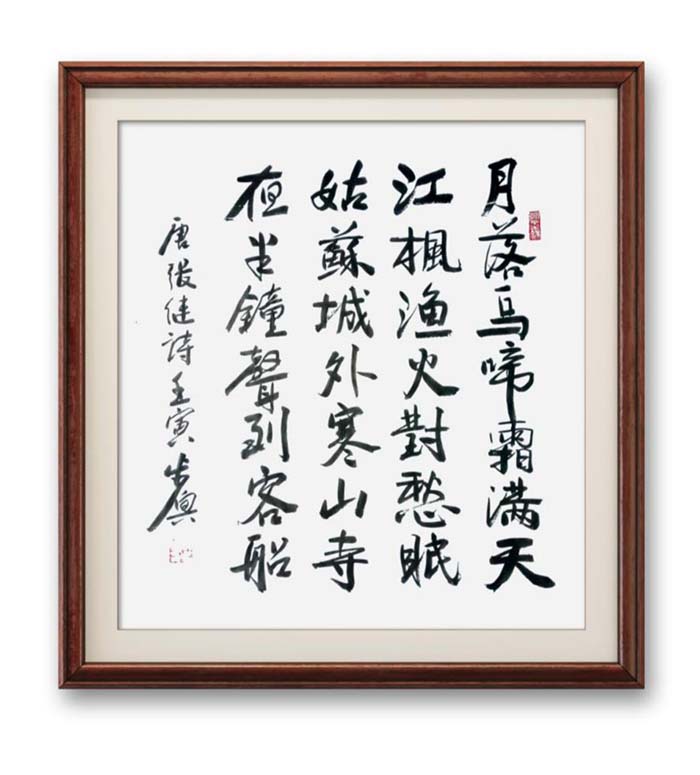 月落乌啼霜满天
江楓渔火對愁眠
姑蘇城外寒山寺
夜半鐘聲到客船
唐張继詩壬寅